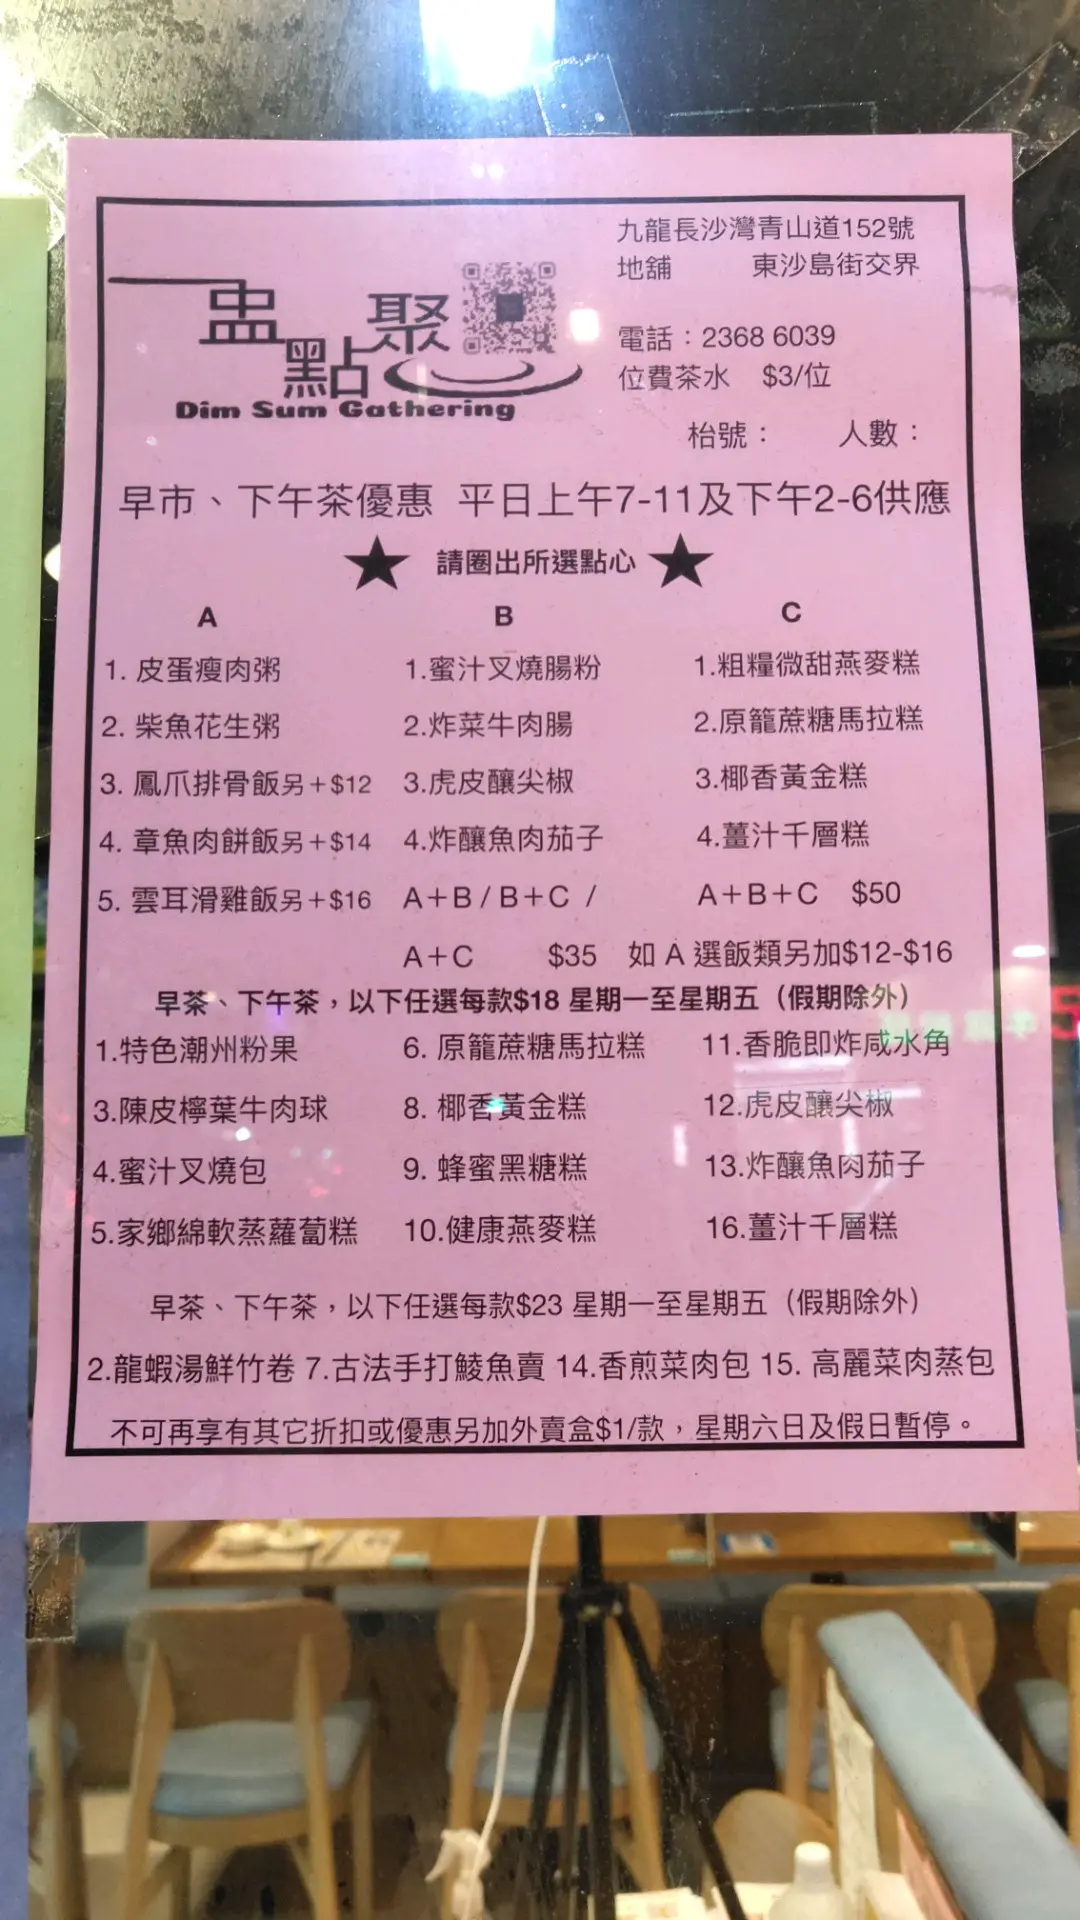 九龍長沙灣青山道152號
地舖 東沙島街交界
一盅點聚
Dim Sum Gathering
電話：2368 6039
位費茶水 $3/位
枱號： 人數：
早市、下午茶優惠 平日上午7-11及下午2-6供應
★ 請圈出所選點心 ★
A B C
1. 皮蛋瘦肉粥 1.蜜汁叉燒腸粉 1.粗糧微甜燕麥糕
2. 柴魚花生粥 2.炸菜牛肉腸 2.原籠蔗糖馬拉糕
3. 鳳爪排骨飯另＋$12 3.虎皮釀尖椒 3.椰香黃金糕
4. 章魚肉餅飯另＋$14 4.炸釀魚肉茄子 4.薑汁千層糕
5. 雲耳滑雞飯另＋$16 A＋B / B＋C / A＋B＋C $50
A＋C $35 如 A 選飯類另加$12-$16
早茶、下午茶，以下任選每款$18 星期一至星期五（假期除外）
1.特色潮州粉果 6. 原籠蔗糖馬拉糕 11.香脆即炸咸水角
3.陳皮檸葉牛肉球 8. 椰香黃金糕 12.虎皮釀尖椒
4.蜜汁叉燒包 9. 蜂蜜黑糖糕 13.炸釀魚肉茄子
5.家鄉綿軟蒸蘿蔔糕 10.健康燕麥糕 16.薑汁千層糕
早茶、下午茶，以下任選每款$23 星期一至星期五（假期除外）
2.龍蝦湯鮮竹卷 7.古法手打鯪魚賣 14.香煎菜肉包 15. 高麗菜肉蒸包
不可再享有其它折扣或優惠另加外賣盒$1/款，星期六日及假日暫停。